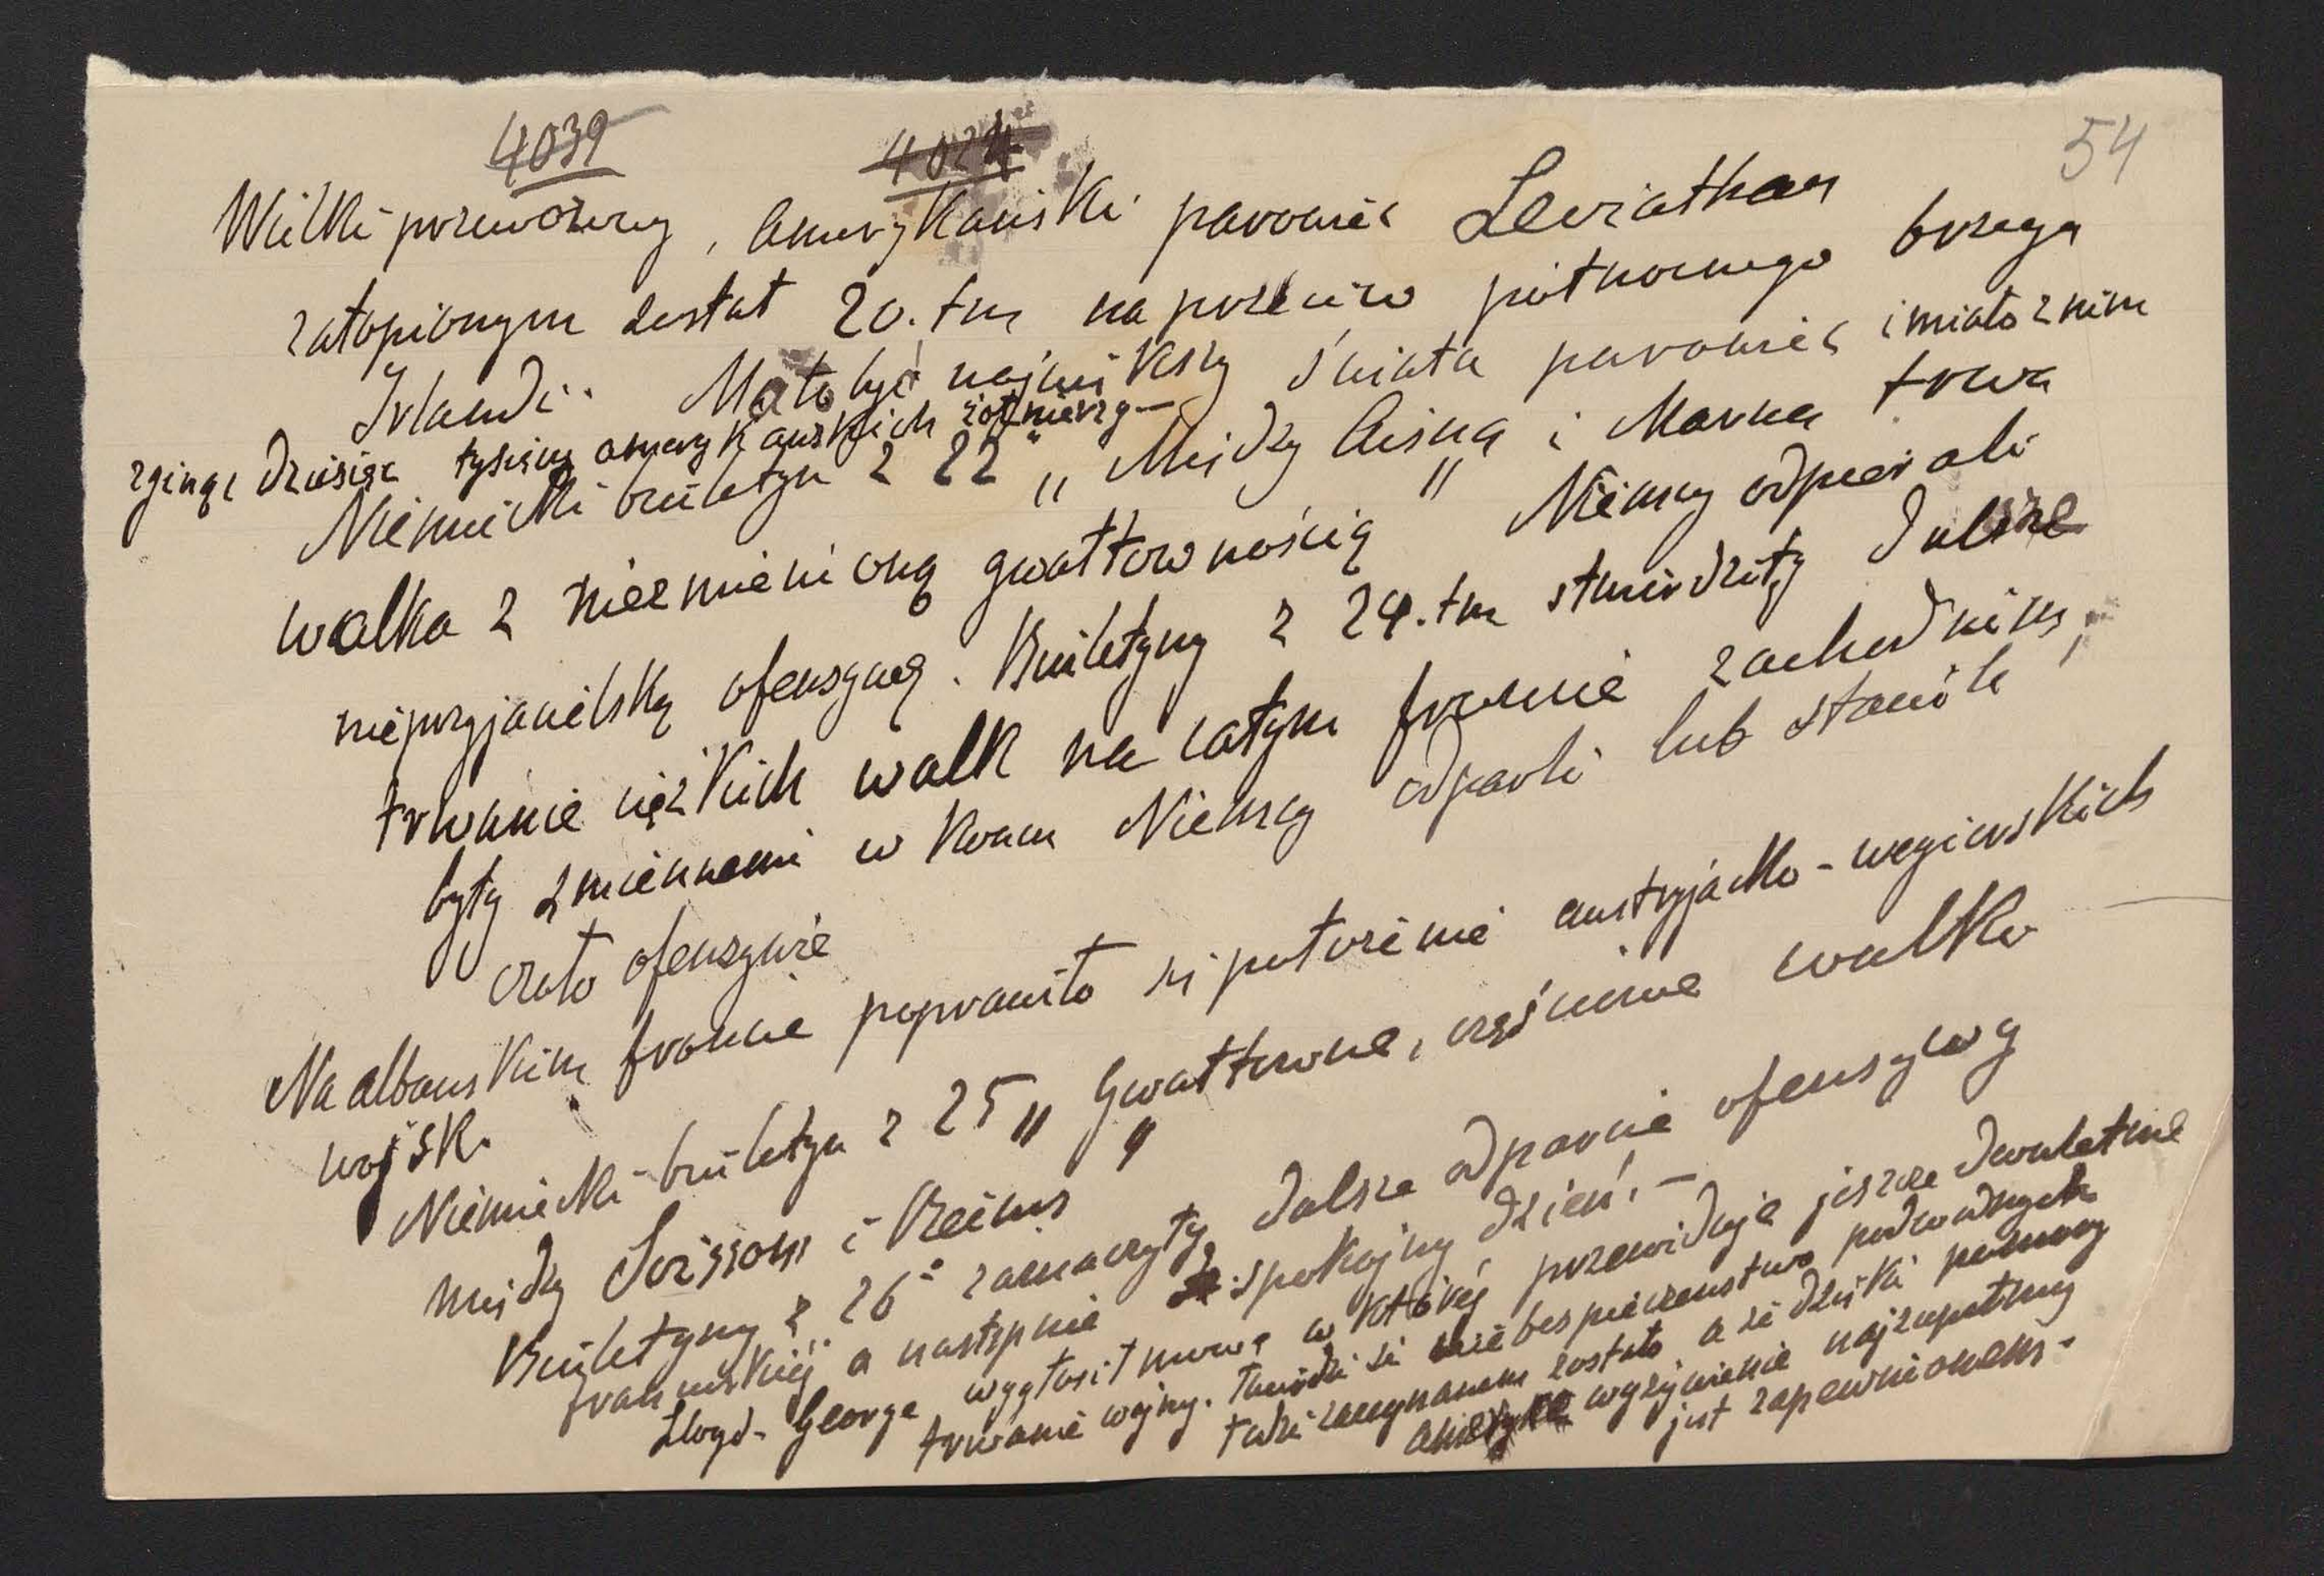 4039 4024 54
Wielki przewozowy, amerykański parowiec Leviathan
zatopionym został 20.tm naprzeciw północnego brzegu
Irlandii. Miał być największy świata parowiec i miało z nim
zginąć dziesięć tysięcy amerykańskich żołnierzy—
Niemiecki biuletyn z 22 „Między Aisną i Marną trwa
walka z niezmienioną gwałtownością" Niemcy odpierali
nieprzyjacielską ofensywę. Biuletyny z 24.tm stwierdziły dalsze
trwanie ciężkich walk na całym froncie zachodnim,
były zmiennemi w koncu Niemcy odparli lub stawili
czoło ofenzywie
Na albanskim froncie poprawiło się położenie austryjacko-węgierskich
wojsk.
Niemiecki biuletyn z 25 „Gwałtowne, częściowe walki"
między Soissons i Reims
Biuletyny z 26º zaznaczyły dalsze odparcie ofensywy
francuskiéj a następnie spokojny dzień.—
Lloyd-George wygłosił mowę w któréj przewiduje jeszcze dwuletnie
trwanie wojny. Twierdzi że niebespieczenstwo podwodnych
łodzi zażegnanem zostało a że dzięki pomocy
wyżywienie najzupełniej
jest zapewnionem.